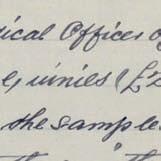 ical Officer o
guinies (£2
the sample